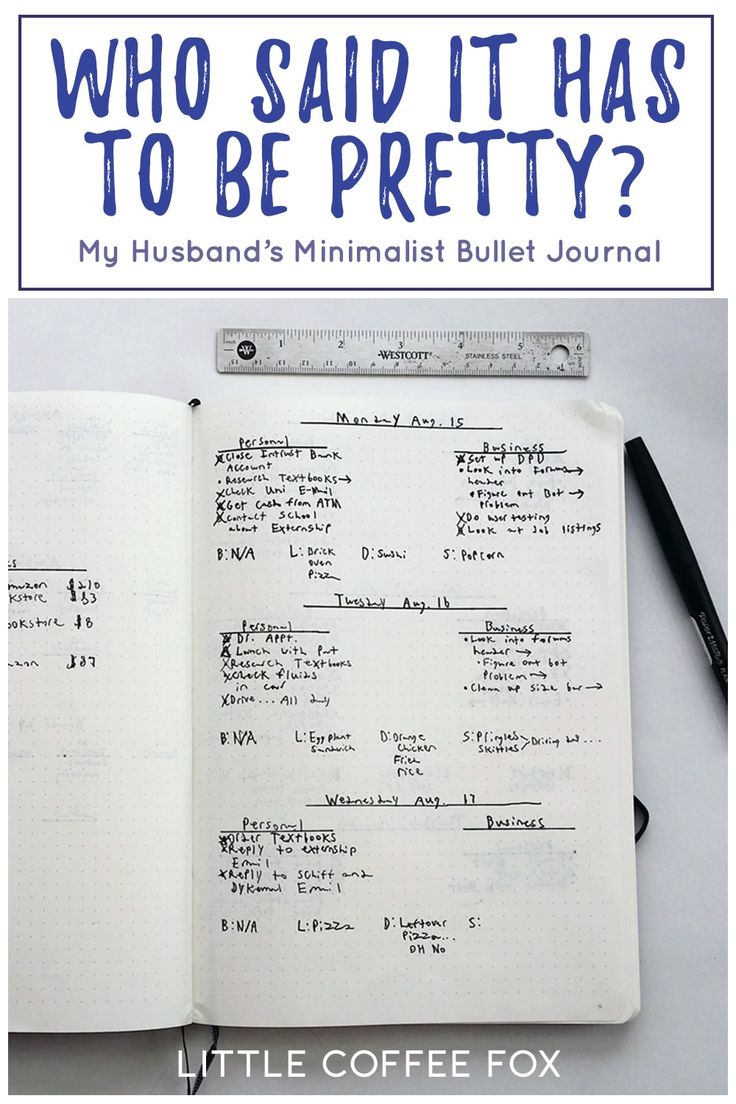 WHO SAID IT HAS
TO BE PRETTY?
My Husband's Minimalist Bullet Journal
inch
1 2 3 4 5 6
W
WESTCOTT
STAINLESS STEEL
Monday Aug. 15
Personal
X Close Intrust Bank
Account
• Research Textbooks→
X Check Uni E-Mail
X Get Cash from ATM
X Contact School
about Externship
Business
X Set up DPD
• Look into Forums→
header
• Figure out Bot →
Problem
X Do user testing
X Look at Job listings
B: N/A L: Brick D: Sushi S: Popcorn
oven
Pizza
Tuesday Aug. 16
Personal
X Dr. Appt.
X Lunch with Pat
X Research Textbooks
X Check fluids
in car
X Drive... All day
Business
• Look into forums
header →
• Figure out bot
Problem →
• Clean up size bar→
B: N/A L: Eggplant D: Orange S: Pringles > Driving day...
Sandwich Chicken Skittles
Fried
rice
Wednesday Aug. 17
Personal
X Order Textbooks
X Reply to externship
Email
X Reply to Schiff and
Email
Business
B: N/A L: Pizza D: Leftover S:
Pizza...
OH NO
$210
kstore $3
okstore $8
$87
LITTLE COFFEE FOX